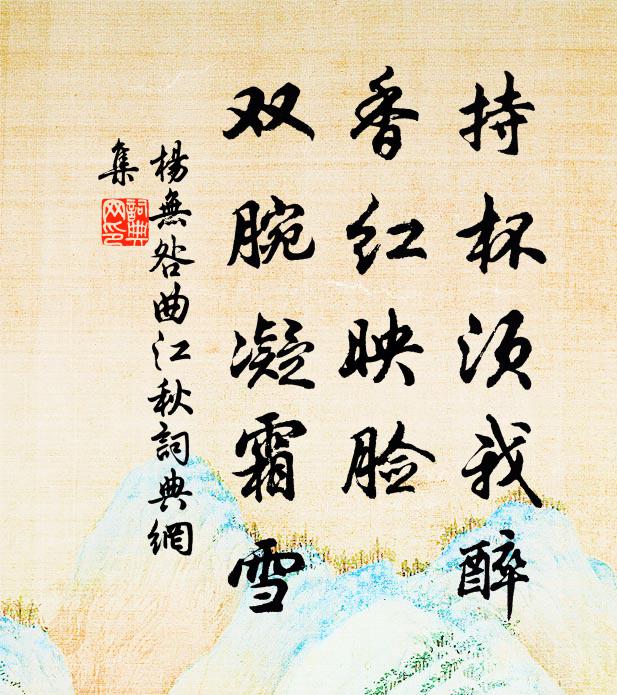 持杯须我醉
香红映脸
双腕凝霜雪
楊無咎曲江秋詞典網
集
詞典网印